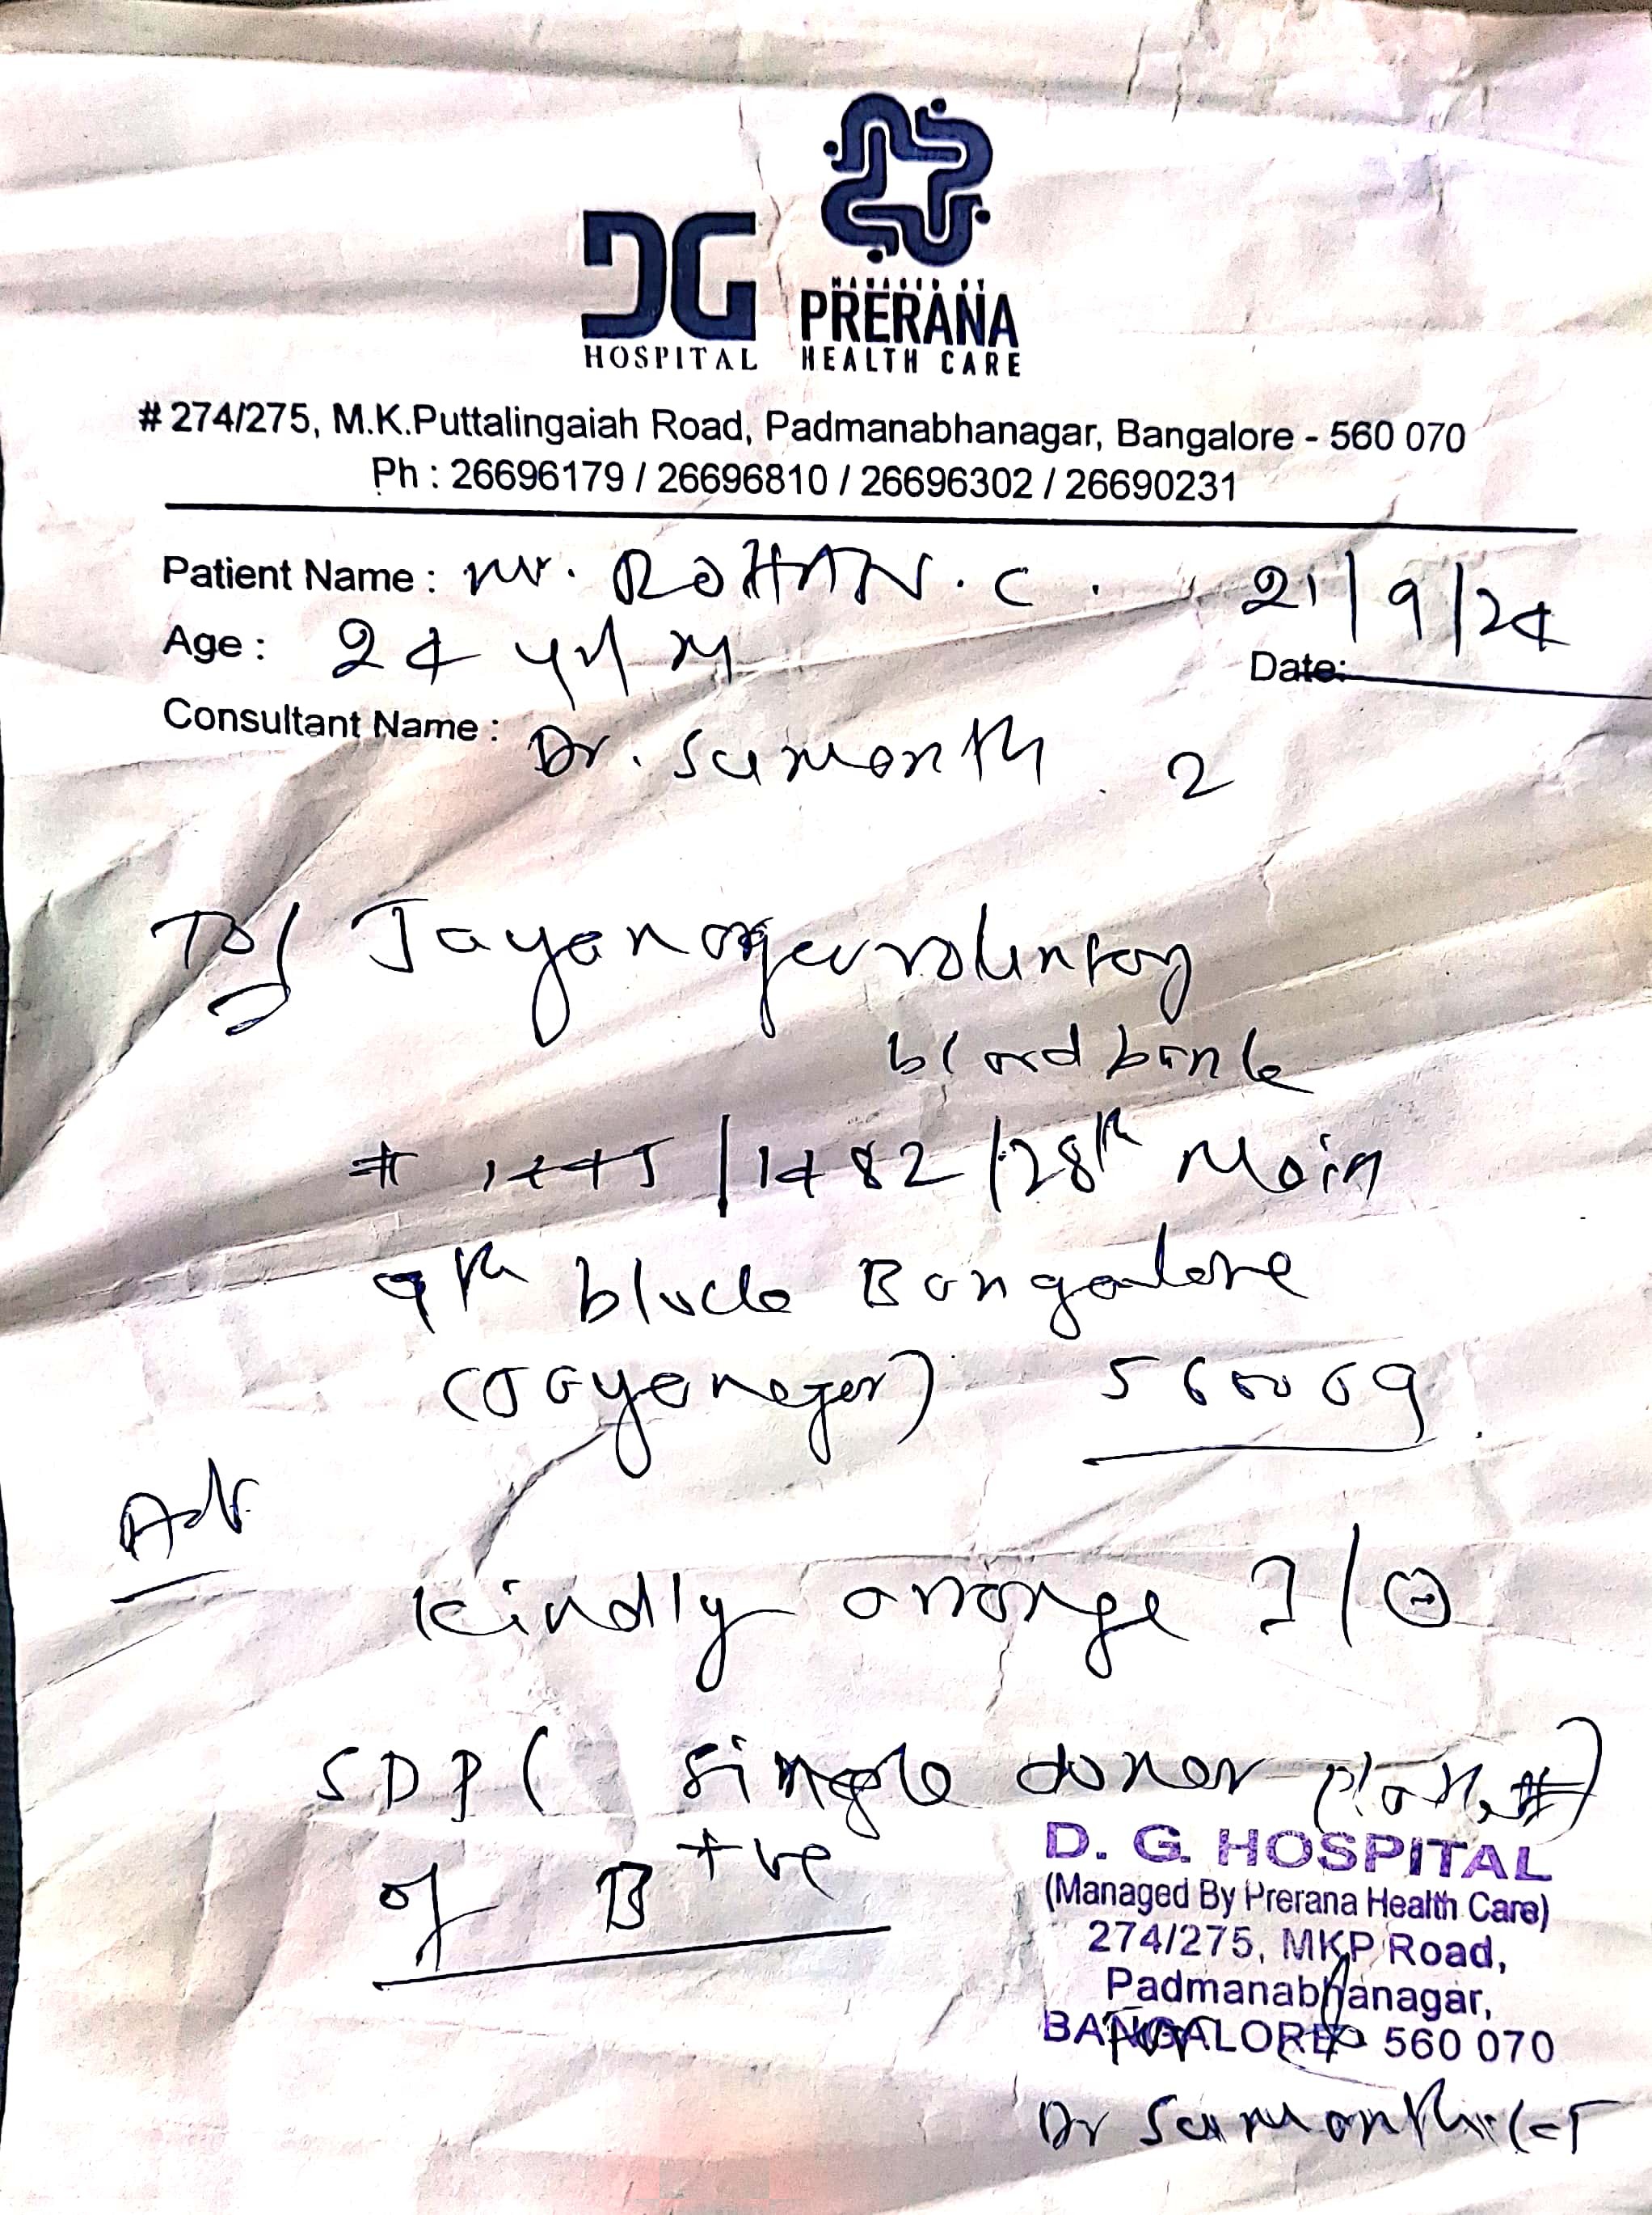 DG
HOSPITAL
PRERANA
HEALTH CARE
# 274/275, M.K.Puttalingaiah Road, Padmanabhanagar, Bangalore - 560 070
Ph : 26696179 / 26696810 / 26696302 / 26690231
Patient Name : Mr. ROHAN. C.
21/9/24
Age : 24 yr/M
Date:
Consultant Name : Dr. Sumanth. 2
To/ Jayanagar voluntary
blood bank
# 1445/1482/28th Main
9th block Bangalore
(Jayanagar) 560069
Adv
Kindly arrange 1/0
SDP ( Single donor
of B +ve
D. G. HOSPITAL
(Managed By Prerana Health Care)
274/275, MKP Road,
Padmanabhanagar,
BANGALORE - 560 070
Dr Sumanth